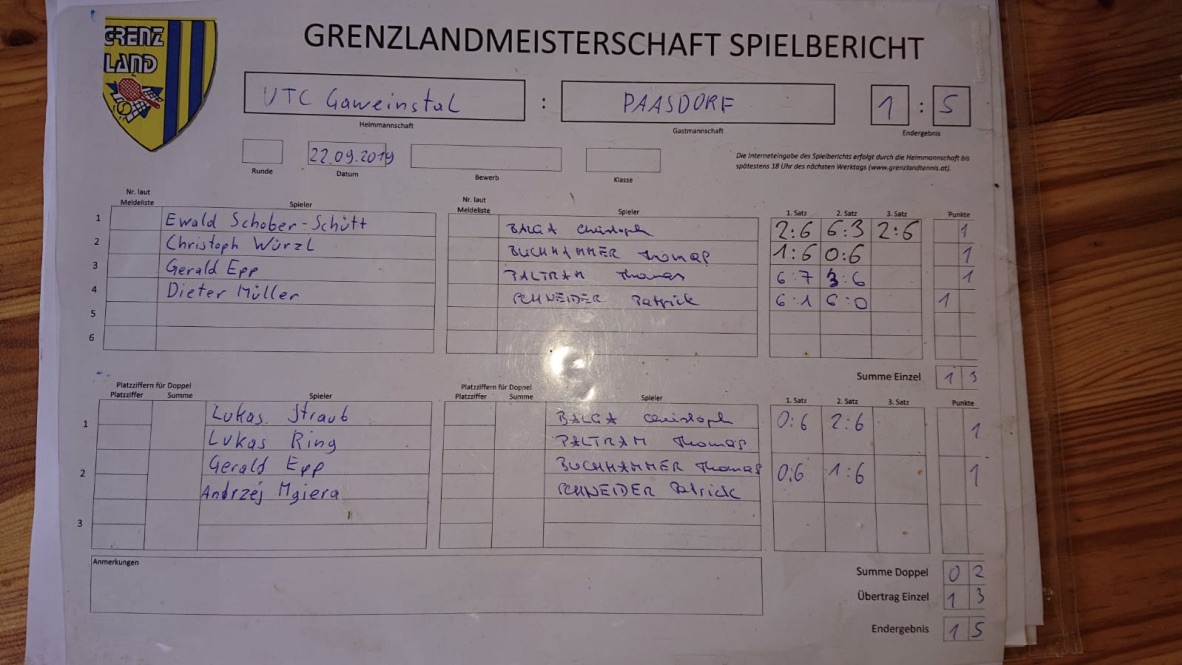 GRENZ
LAND
GRENZLANDMEISTERSCHAFT SPIELBERICHT
UTC Gaweinstal : PAASDORF 1 : 5
Heimmannschaft Gastmannschaft Endergebnis
22.09.2019
Runde Datum Bewerb Klasse
Die Interneteingabe des Spielberichts erfolgt durch die Heimmannschaft bis
spätestens 18 Uhr des nächsten Werktags (www.grenzlandtennis.at).
Nr. laut Meldeliste Spieler Nr. laut Meldeliste Spieler 1. Satz 2. Satz 3. Satz Punkte
1 Ewald Schober-Schütt BALGA Christoph 2:6 6:3 2:6 1
2 Christoph Würzl BUCHHAMMER Thomas 1:6 0:6 1
3 Gerald Epp PALTRAM Thomas 6:7 3:6 1
4 Dieter Müller SCHNEIDER Patrick 6:1 6:0 1
5
6
Summe Einzel 1 3
Platzziffern für Doppel Platzziffern für Doppel
Platzziffer Summe Spieler Platzziffer Summe Spieler 1. Satz 2. Satz 3. Satz Punkte
1 Lukas Straub BALGA Christoph 0:6 2:6 1
Lukas Ring PALTRAM Thomas
2 Gerald Epp BUCHHAMMER Thomas 0:6 1:6 1
Andrzej Mgiera SCHNEIDER Patrick
3
Anmerkungen
Summe Doppel 0 2
Übertrag Einzel 1 3
Endergebnis 1 5